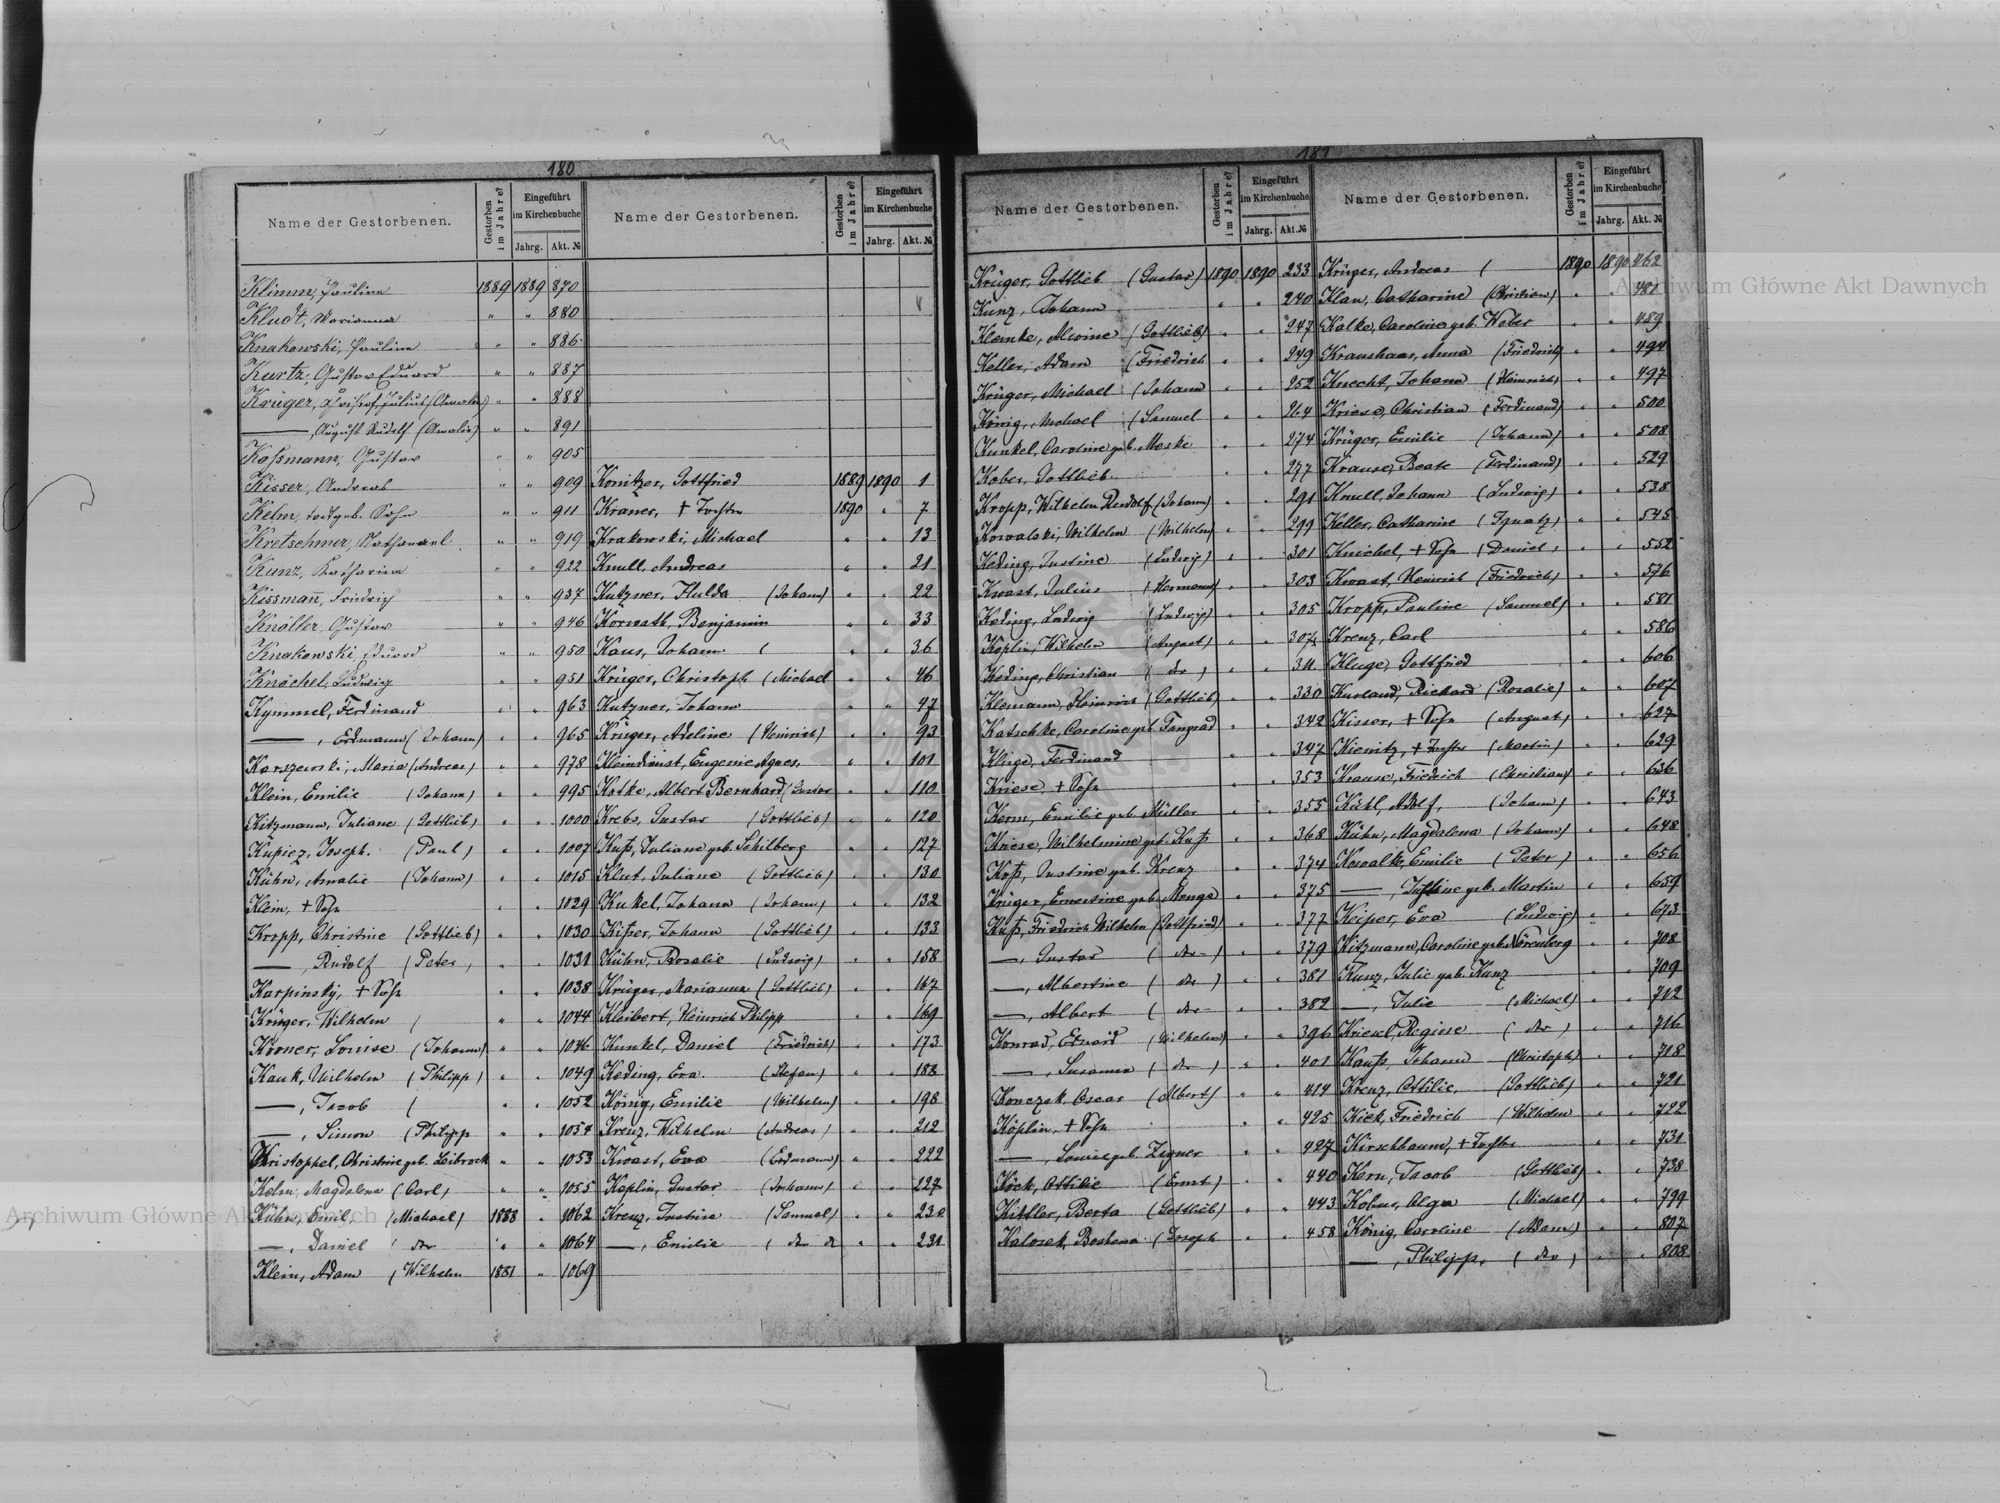 180
Name der Gestorbenen. Gestorben im Jahre? Eingeführt im Kirchenbuche Jahrg. Akt. №
Klimm, Pauline 1889 1889 870
Kludt, Marianna " " 880
Knakowski, Pauline " " 886
Kurtz, Gustav Eduard " " 887
Krüger, Julius (Amalie) " " 888
—, August Rudolf (Amalie) " " 891
Koßmann, Gustav " " 905
Kisser, Andreas " " 909
Kelm, todtgeb. Sohn " " 911
Kretschmer, Nathanael " " 919
Kunz, Katharina " " 922
Kissmañ, Friedrich " " 937
Knöller, Gustav " " 946
Knakowski, Eduard " " 950
Knöchel, Ludwig " " 951
Kymmel, Ferdinand " " 963
—, Erdmann (Johann) " " 965
Karszewski, Maria (Andreas) " " 978
Klein, Emilie (Johann) " " 995
Kitzmann, Juliane (Gottlieb) " " 1000
Kupiez, Joseph. (Paul) " " 1007
Kühn, Amalie (Johann) " " 1015
Klein, + Sohn " " 1029
Kropp, Christine (Gottlieb) " " 1030
—, Rudolf (Peter, " " 1031
Karpinsky, + Sohn " " 1038
Krüger, Wilhelm ( " " 1044
Körner, Louise (Johann) " " 1046
Kauk, Wilhelm (Philipp) " " 1049
—, Jacob ( " " 1052
—, Simon (Philipp " " 1054
Christophel, Christine geb. Leibrock " " 1053
Kelm, Magdalena (Carl, " " 1055
Kühn, Emil, (Michael) 1888 " 1062
—, Daniel ( dto " " 1064
Klein, Adam (Wilhelm 1881 " 1069
Name der Gestorbenen. Gestorben im Jahre? Eingeführt im Kirchenbuche Jahrg. Akt. №
Konitzer, Gottfried 1889 1890 1
Kraner, + Tochter 1890 " 7
Krakowski, Michael " " 13
Knull, Andreas " " 21
Kutzner, Hulda (Johann) " " 22
Korwath, Benjamin " " 33
Kaus, Johann ( " " 36
Krüger, Christoph (Michael " " 46
Kutzner, Johann " " 47
Krüger, Adeline (Heinrich) " " 93
Kleindienst, Eugenie Agnes, " " 101
Katke, Albert Bernhard (Gustav " " 110
Krebs, Gustav (Gottlieb) " " 120
Kuß, Juliane geb. Schilberg " " 127
Klut, Juliane (Gottlieb) " " 130
Kukel, Johann (Johann, " " 132
Kißer, Johann (Gottlieb) " " 133
Kühn, Rosalie (Ludwig, " " 158
Krüger, Marianna (Gottlieb) " " 167
Kleibert, Heinrich Philipp " " 169
Kunkel, Daniel (Friedrich) " " 173
Keding, Eva. (Stefan) " " 183
König, Emilie (Wilhelm) " " 198
Krenz, Wilhelm (Andreas) " " 212
Kwast, Eva (Erdmann) " " 222
Koplin, Gustav (Johann) " " 227
Krenz, Justine (Samuel) " " 230
—, Emilie ( dto " " 231
181
Name der Gestorbenen. Gestorben im Jahre? Eingeführt im Kirchenbuche Jahrg. Akt. №
Krüger, Gottlieb (Gustav) 1890 1890 233
Kunz, Johann " " 240
Klemke, Alwine (Gottlieb) " " 247
Keller, Adam (Friedrich " " 249
Krüger, Michael (Johann " " 252
König, Michael (Samuel " " 264
Kunkel, Caroline geb. Meske " " 274
Kober, Gottlieb. " " 277
Kropp, Wilhelm Rudolf (Johann) " " 291
Kowalski, Wilhelm (Wilhelm) " " 299
Keding, Justine (Ludwig) " " 301
Kwast, Julius (Hermann) " " 303
Keding, Ludwig (Ludwig) " " 305
Koplin, Wilhelm (August) " " 307
Keding, Christian ( dto ) " " 311
Klemann, Heinrich (Gottlieb) " " 330
Katschke, Caroline geb. Fangrad " " 342
Kluge, Ferdinand " " 347
Kriese, + Sohn " " 353
Kern, Emilie geb. Müller " " 355
Kriese, Wilhelmine geb. Kuß " " 368
Koß, Justine geb. Krenz " " 374
Krüger, Ernestine geb. Menge " " 375
Kuß, Friedrich Wilhelm (Gottfried) " " 377
—, Gustav ( dto ) " " 379
—, Albertine ( dto ) " " 381
—, Albert ( dto " " 382
Konrad, Eduard (Wilhelm) " " 396
—, Susanna ( dto ) " " 401
Konczak, Oscar (Albert) " " 414
Köplin, + Sohn " " 425
—, Louise geb. Zegner " " 427
Köck, Ottilie (Ernst) " " 440
Kittler, Berta (Gottlieb) " " 443
Kalosek, Boshena (Joseph " " 458
Name der Gestorbenen. Gestorben im Jahre? Eingeführt im Kirchenbuche Jahrg. Akt. №
Krüger, Andreas ( 1890 1890 462
Klau, Catharine (Christian) " " 481
Kalke, Caroline geb. Weber " " 489
Kraushaar, Anna (Friedrich) " " 494
Knecht, Johann (Heinrich) " " 497
Kriese, Christian (Ferdinand) " " 500
Krüger, Emilie (Johann) " " 508
Krause, Beate (Ferdinand) " " 529
Knull, Johann (Ludwig) " " 538
Keller, Catharine (Ignatz) " " 545
Knichel, + Sohn (Daniel, " " 552
Kwast, Heinrich (Friedrich) " " 576
Kropp, Pauline (Samuel) " " 581
Krenz, Carl " " 586
Kluge, Gottfried " " 606
Kurland, Richard (Rosalie) " " 607
Kisser, + Sohn (August) " " 627
Kienitz, + Tochter (Martin) " " 629
Krause, Friedrich (Christian) " " 636
Kühl, Adolf, (Johann) " " 643
Kühn, Magdalena (Johann) " " 648
Kowalke, Emilie (Peter) " " 656
—, Justine geb. Martin " " 659
Keiper, Eva (Ludwig) " " 673
Kitzmann, Caroline geb. Nörenberg " " 708
Kunz, Julie geb. Kunz " " 709
—, Julie (Michael) " " 712
Kriesel, Regine ( dto ) " " 716
Kauß, Johann (Christoph) " " 718
Krenz, Ottilie, (Gottlieb) " " 721
Kiek, Friedrich (Wilhelm " " 722
Kirschbaum, + Tochter " " 731
Kern, Jacob (Gottlieb) " " 738
Kobus, Olga (Michael) " " 799
König, Caroline (Adam) " " 807
—, Philipp, ( dto ) " " 808
Archiwum Główne Akt Dawnych
Archiwum Główne Akt Dawnych